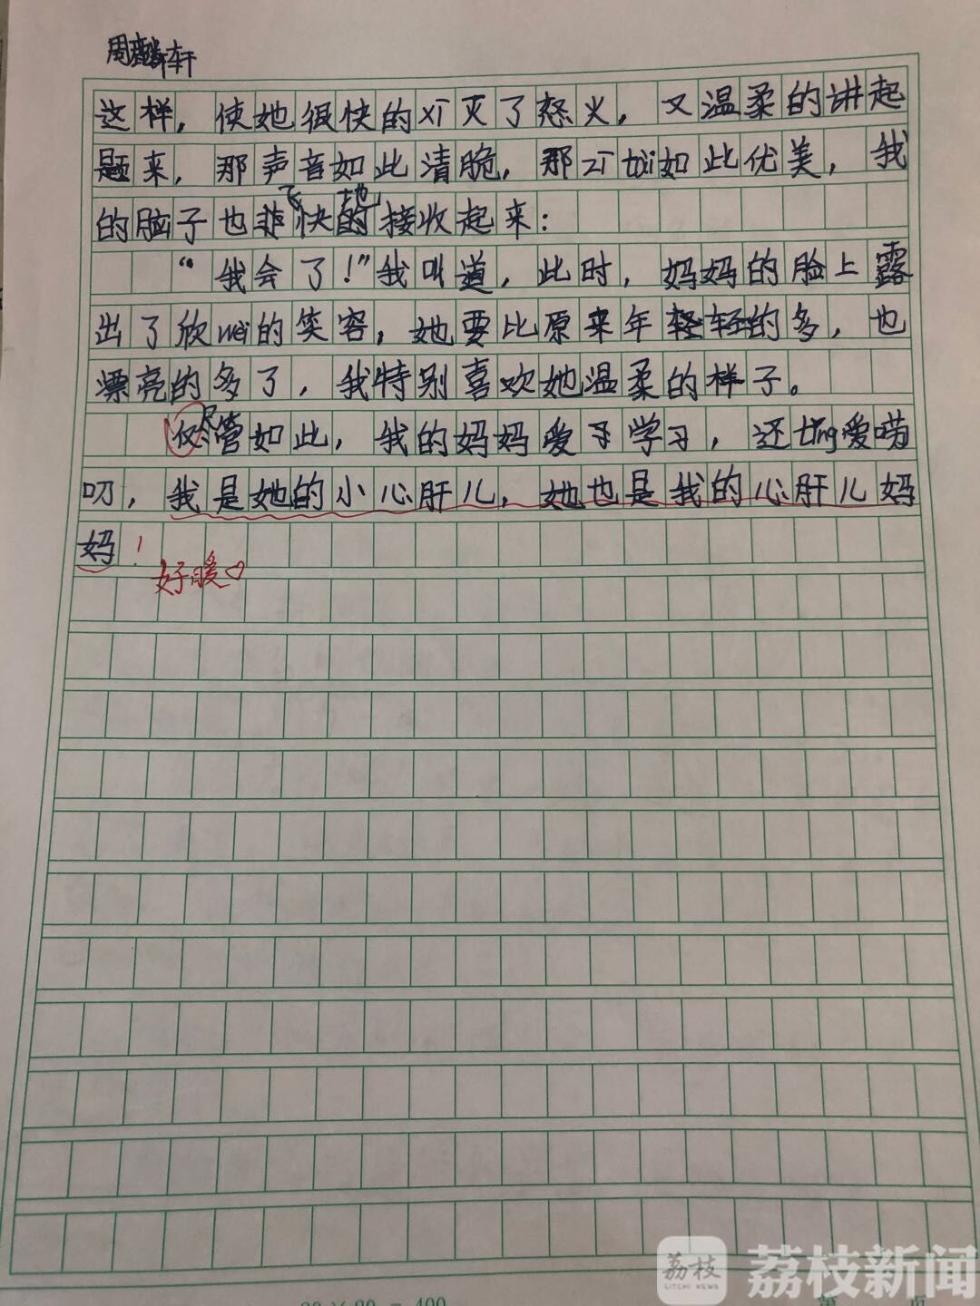 周麟轩
这样，使她很快的xī灭了怒火，又温柔的讲起
题来，那声音如此清脆，那zī tài如此优美，我
的脑子也飞快地接收起来：
“我会了！”我叫道，此时，妈妈的脸上露
出了欣wèi的笑容，她要比原来年轻轻的多，也
漂亮的多了，我特别喜欢她温柔的样子。
尽管如此，我的妈妈爱学习，还tǐng爱唠
叨，我是她的小心肝儿，她也是我的心肝儿妈
妈！
好暖♡
荔枝
LITCHI NEWS
荔枝新闻
20×20=400
第 页